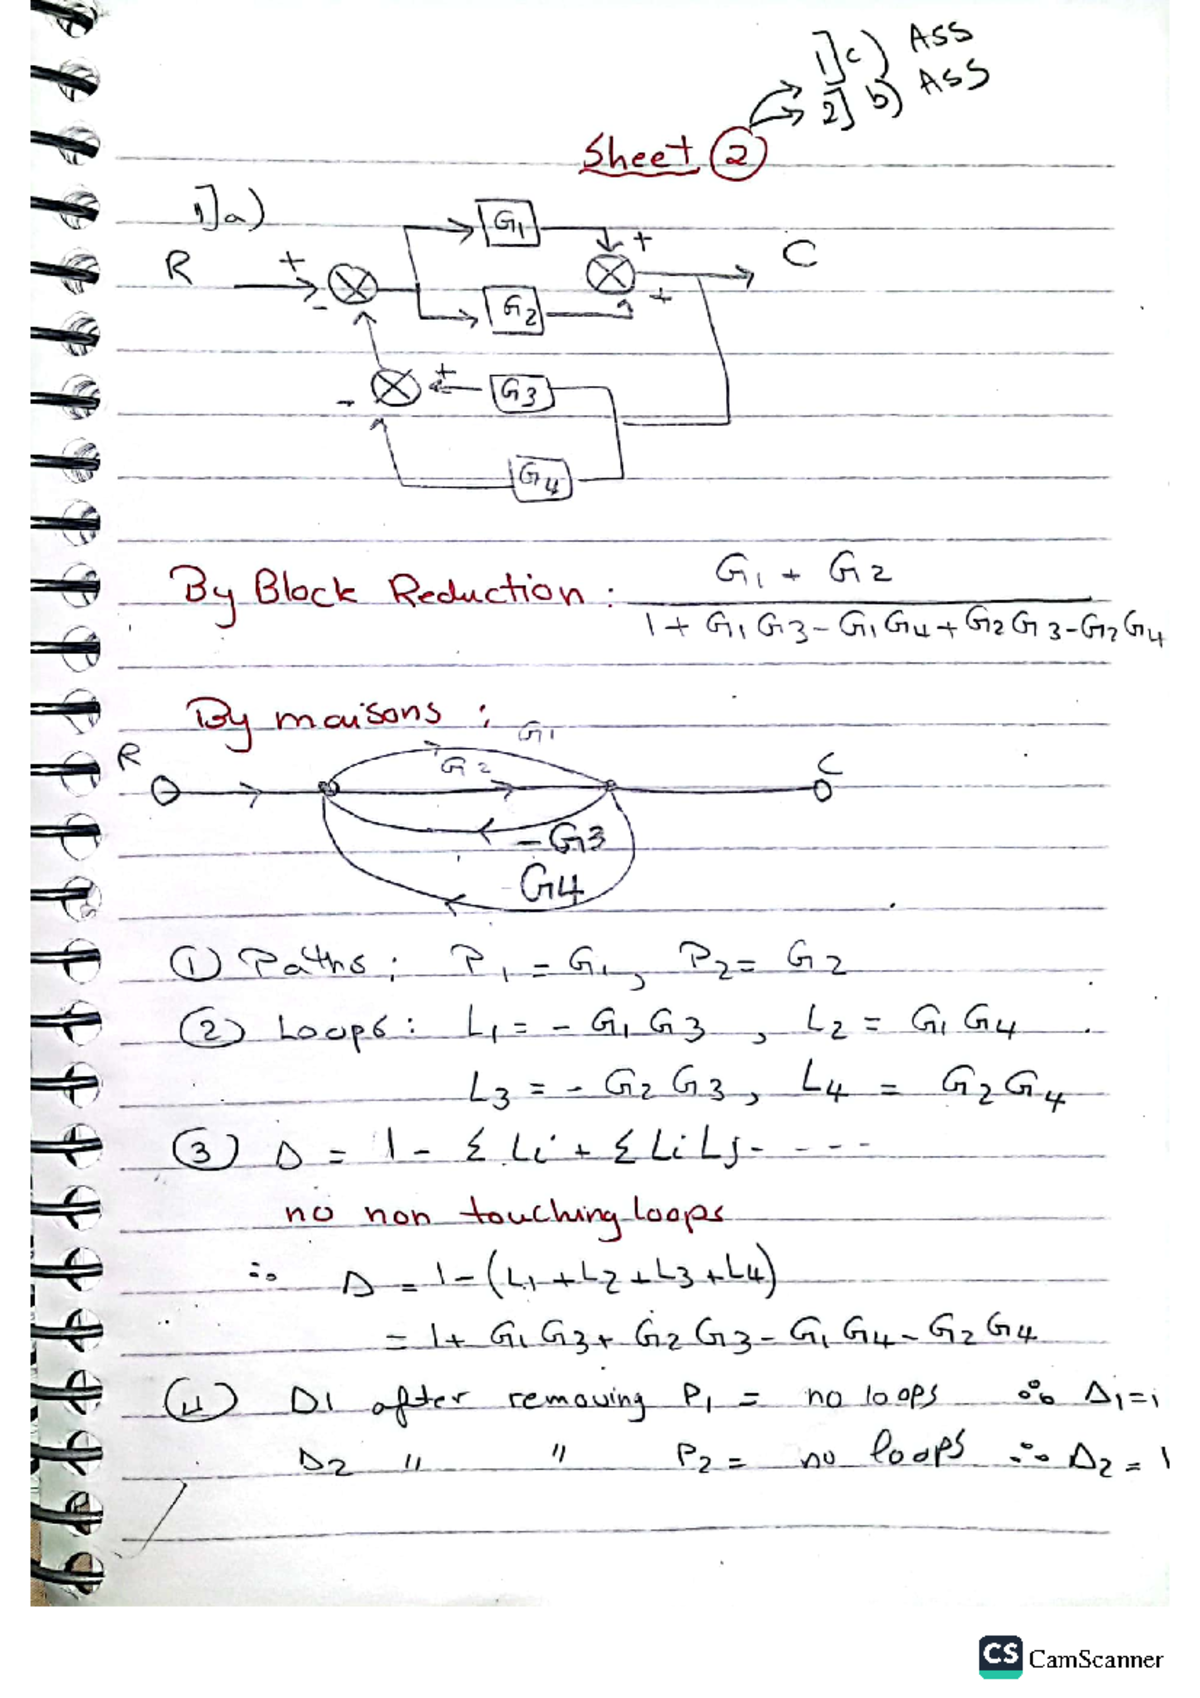 1] c) ASS
2] b) ASS
Sheet 2
1] a)
R + - G1 + C
G2 +
- + G3
G4
By Block Reduction : G1 + G2
1 + G1 G3 - G1 G4 + G2 G3 - G2 G4
By maisons :
R G1 C
G2
- G3
G4
① Paths : P1 = G1 , P2 = G2
② Loops : L1 = - G1 G3 , L2 = G1 G4
L3 = - G2 G3 , L4 = G2 G4
③ Δ = 1 - Σ Li + Σ Li Lj - - - -
no non touching loops
∴ Δ = 1 - (L1 + L2 + L3 + L4)
= 1 + G1 G3 + G2 G3 - G1 G4 - G2 G4
④ Δ1 after removing P1 = no loops ∴ Δ1 = 1
Δ2 " " P2 = no loops ∴ Δ2 = 1
CS CamScanner